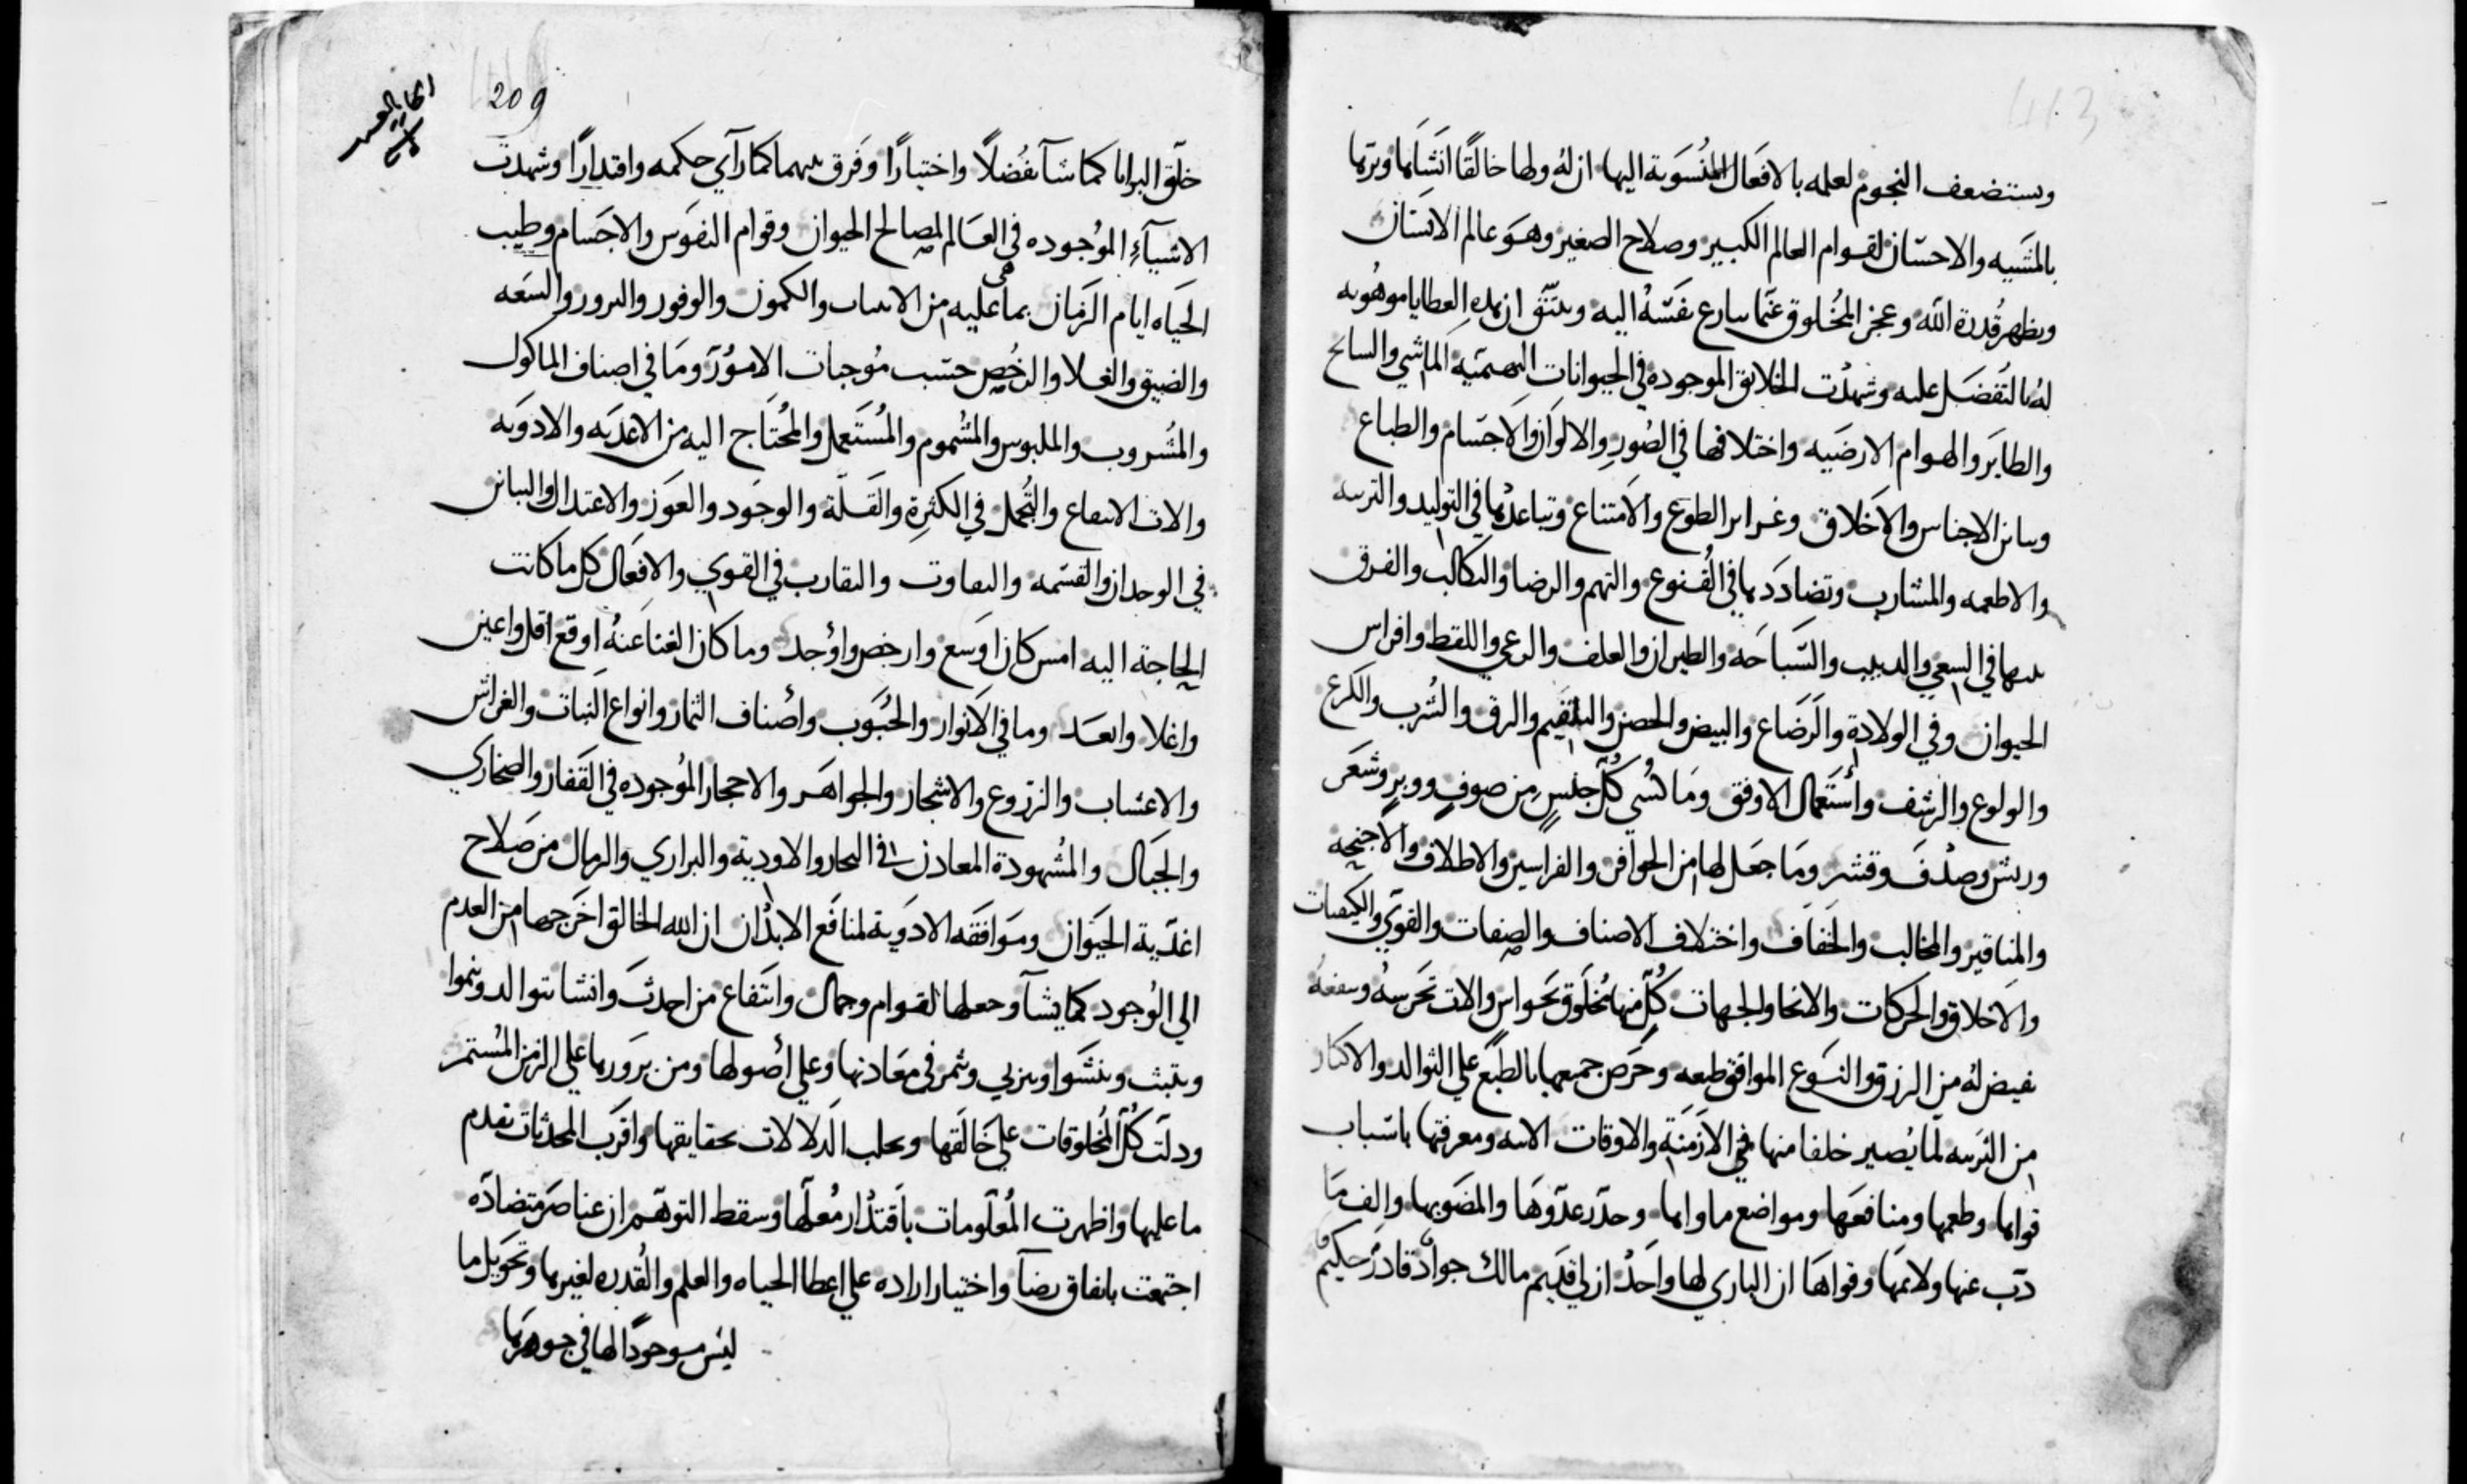 413
ويستضعف النجوم لعلمه بالافعال المنسوبة اليها ان له ولها خالقا انشاها ودبرها
بالمشيه والاحسان لقوام العالم الكبير وصلاح الصغير وهو عالم الانسان
ويظهر قدرة الله وعجز المخلوق عما سارع نفسه اليه ويتيقن ان هذه العطايا موهوبه
له بالتفضل عليه وشهدت الخلايق الموجوده في الحيوانات البهيميه الماشي والسابح
والطاير والهوام الارضيه واختلافها في الصور والالوان والاجسام والطباع
وتباين الاجناس والاخلاق وغراير الطوع والامتناع وتباعدها في التوليد والتربيه
والاطعمه والمشارب وتضاددها في القنوع والنهم والرضا والتكالب والفرق
بينها في السعي والدبيب والسباحه والطيران والعلف والرعي واللقط وافراس
الحيوان وفي الولادة والرضاع والبيض والحضن والتلقيم والزق والشرب والكرع
والولوع والرشف واستعمال الاوفق وما كسي كل جنس من صوف ووبر وشعر
وريش وصدف وقشر وما جعل لها من الحوافر والفراسين والاظلاف والاجنحه
والمناقير والمخالب والخفاف واختلاف الاصناف والصفات والقوي والكيفيات
والاخلاق والحركات والانحا والجهات كل منها مخلوق بحواس والات تحرسه وينفعه
نفيض له من الرزق والنوع الموافق طبعه وحرص جميعها بالطبع علي التوالد والاكثار
من التربيه لما يصير خلفا منها في الازمنة والاوقات الاتيه ومعرفتها باسباب
قوامها وطعمها ومنافعها ومواضع ماواها وحذر عدوها والمضر بها والف ما
ذب عنها ولايمها وقواها ان الباري لها واحد ازلي قديم مالك جواد قادر حكيم
209
خلق البرايا كما شا تفضلا واختيارا وفرق بينهما كما رآي حكمه واقتدارا وشهدت
الاشيآء الموجوده في العالم لمصالح الحيوان وقوام النفوس والاجسام وطيب
الحياه ايام الزمان بما هي عليه من الاسباب والكمون والوفور والبرور والسعه
والضيق والغلا والرخص حسب موجبات الامور وما في اصناف الماكول
والمشروب والملبوس والمشموم والمستعمل والمحتاج اليه من الاغديه والادويه
والات الانتفاع والتجمل في الكثرة والقلة والوجود والعوز والاعتدال والتباين
في الوجدان والقسمه والتفاوت والتقارب في القوي والافعال كل ما كانت
الحاجة اليه امس كان اوسع وارخص واوجد وما كان الغنا عنه اوقع اقل واعز
واغلا وابعد وما في الانوار والحبوب واصناف الثمار وانواع النبات والغراش
والاعشاب والزروع والاشجار والجواهر والاحجار الموجوده في القفار والصخاري
والجبال والمشهودة المعادن في البحار والاودية والبراري والرمال من صلاح
اغذية الحيوان وموافقه الادوية لمنافع الابدان ان الله الخالق اخرجها من العدم
الي الوجود كما يشآ وجعلها لقوام وجمال وانتفاع من احدث وانشا يتوالد وينموا
ويثبت وينشوا ويربي ويثمر في معادنها وعلي اصولها ومن بزورها علي الزمن المستمر
ودلت كل المخلوقات علي خالقها وتجلت الدلالات بحقايقها واقرت المحدثات بقدم
ما عليها واظهرت المعلومات باقتدار معلها وسقط التوهم ان عناصر متضاده
اجتمعت باتفاق رضا واختيار اراده علي اعطا الحياه والعلم والقدره لغيرها وتحويل ما
ليس موجودا لها في جوهرها